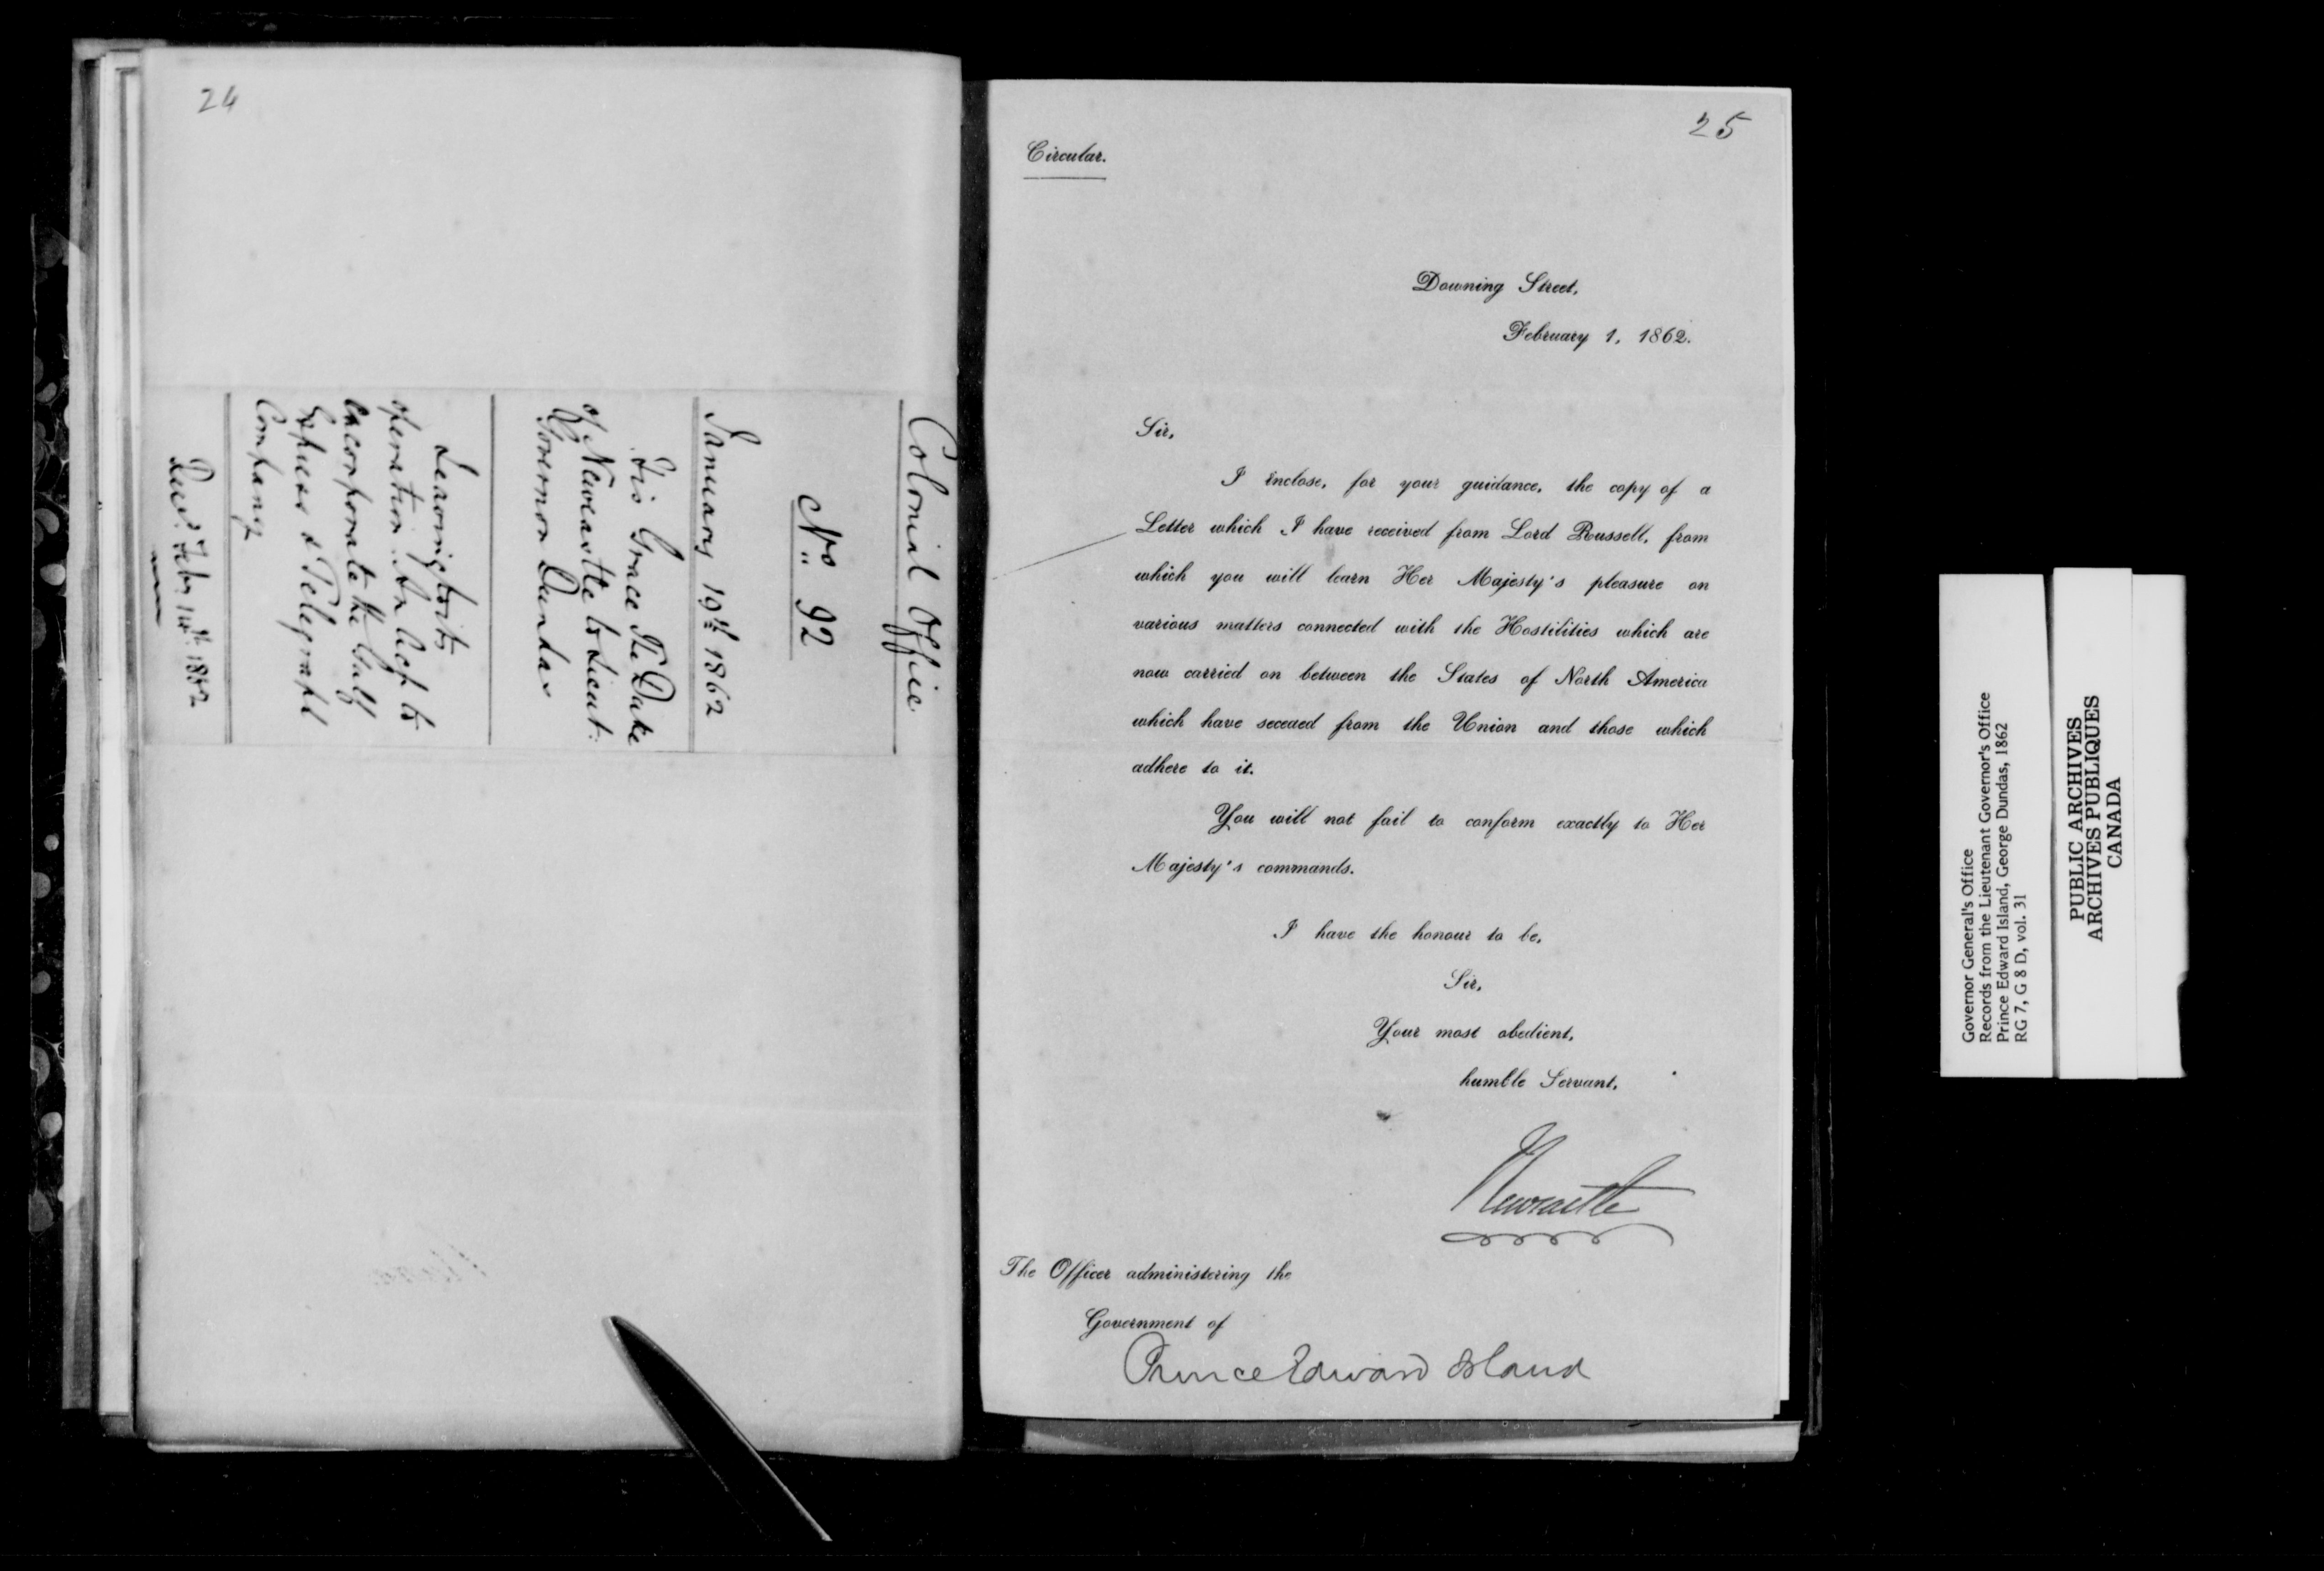 24
Colonial Office
No 92
January 19th 1862
His Grace The Duke
of Newcastle to Lieut:
Governor Dundas
Leaving to its
operation An Act to
incorporate the Gulf
Express & Telegraph
Company
Recd. Feby. 14th. 1862
25
Circular.
Downing Street,
February 1, 1862.
Sir,
I inclose, for your guidance, the copy of a
Letter which I have received from Lord Russell, from
which you will learn Her Majesty's pleasure on
various matters connected with the Hostilities which are
now carried on between the States of North America
which have seceded from the Union and those which
adhere to it.
You will not fail to conform exactly to Her
Majesty's commands.
I have the honour to be,
Sir,
Your most obedient,
humble Servant,
Newcastle
The Officer administering the
Government of
Prince Edward Island
Governor General's Office
Records from the Lieutenant Governor's Office
Prince Edward Island, George Dundas, 1862
RG 7, G 8 D, vol. 31
PUBLIC ARCHIVES
ARCHIVES PUBLIQUES
CANADA